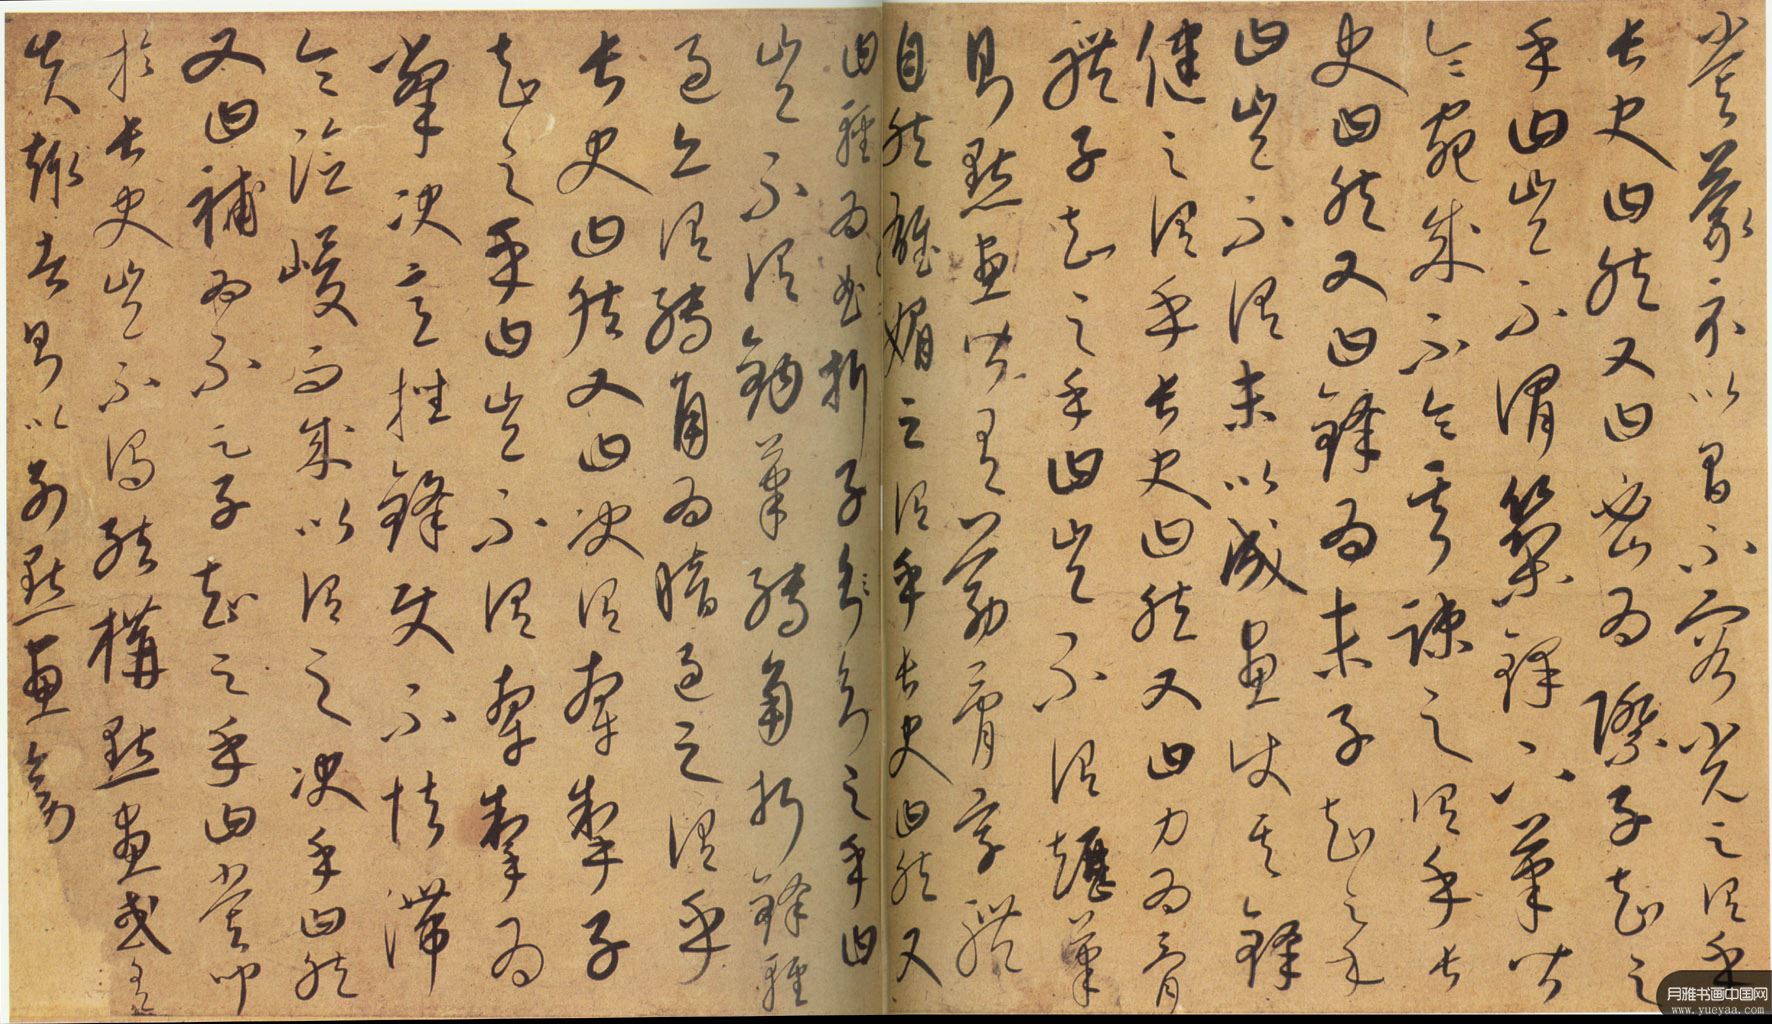 嘗蒙示以間不容光之謂乎
長史曰然又曰密爲際子知之
乎曰豈不謂築鋒下筆皆
令宛成不令其疎之謂乎長
史曰然又曰鋒爲末子知之乎
曰豈不謂末以成畫使其鋒
健之謂乎長史曰然又曰力爲骨
體子知之乎曰豈不謂趯筆
則點畫皆有筋骨字體
自然雄媚之謂乎長史曰然又
曰輕爲曲折子知之乎曰
豈不謂鉤筆轉角折鋒輕
過亦謂轉角爲暗過之謂乎
長史曰然又曰決謂牽掣子
知之乎曰豈不謂牽掣爲
撆決意挫鋒使不怯滯
令險峻而成以謂之決乎曰然
又曰補爲不足子知之乎曰嘗聞
於長史豈不謂結構點畫或有
失趣者則以别點畫旁
月雅书画中国网
www.yueyaa.com